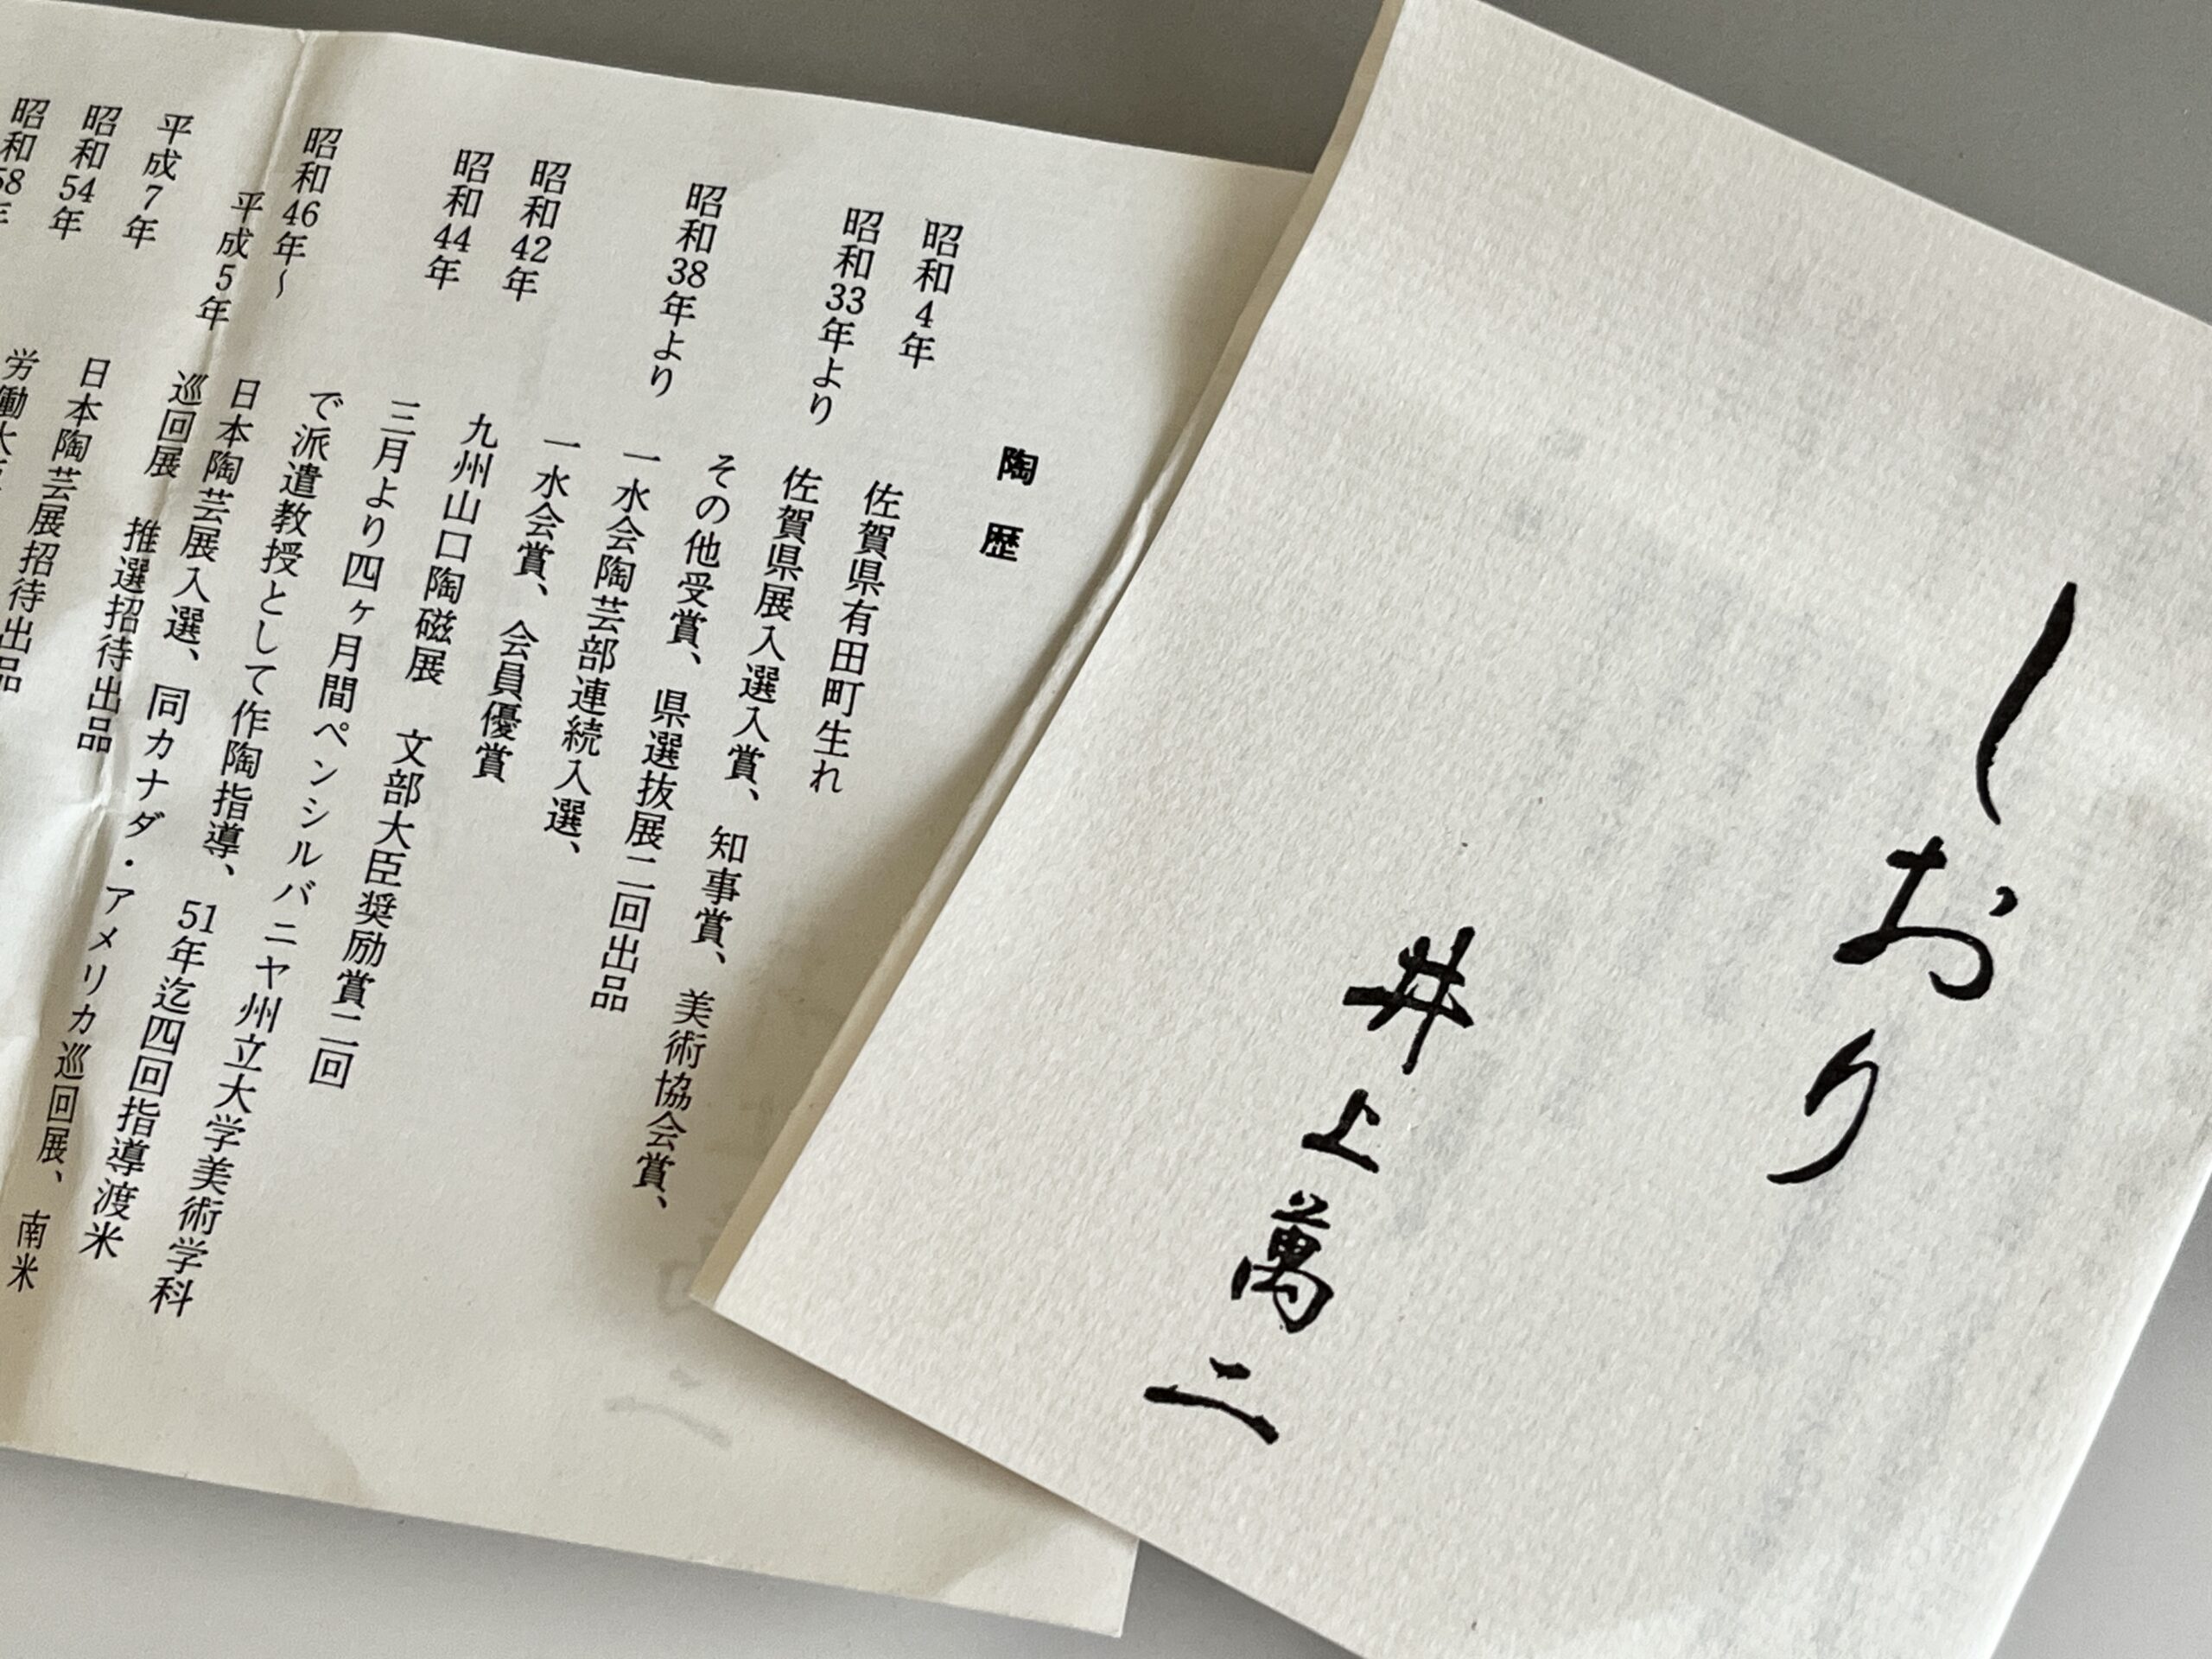 しおり
井上萬二
陶歴
昭和4年 佐賀県有田町生れ
昭和33年より 佐賀県展入選入賞、知事賞、美術協会賞、
その他受賞、県選抜展二回出品
昭和38年より 一水会陶芸部連続入選、
一水会賞、会員優賞
昭和42年 九州山口陶磁展 文部大臣奨励賞二回
昭和44年 三月より四ヶ月間ペンシルバニヤ州立大学美術学科
で派遣教授として作陶指導、51年迄四回指導渡米
昭和46年~ 日本陶芸展入選、同カナダ・アメリカ巡回展、南米
平成5年 巡回展 推選招待出品
平成7年 日本陶芸展招待出品
昭和54年 労働大
昭和58年